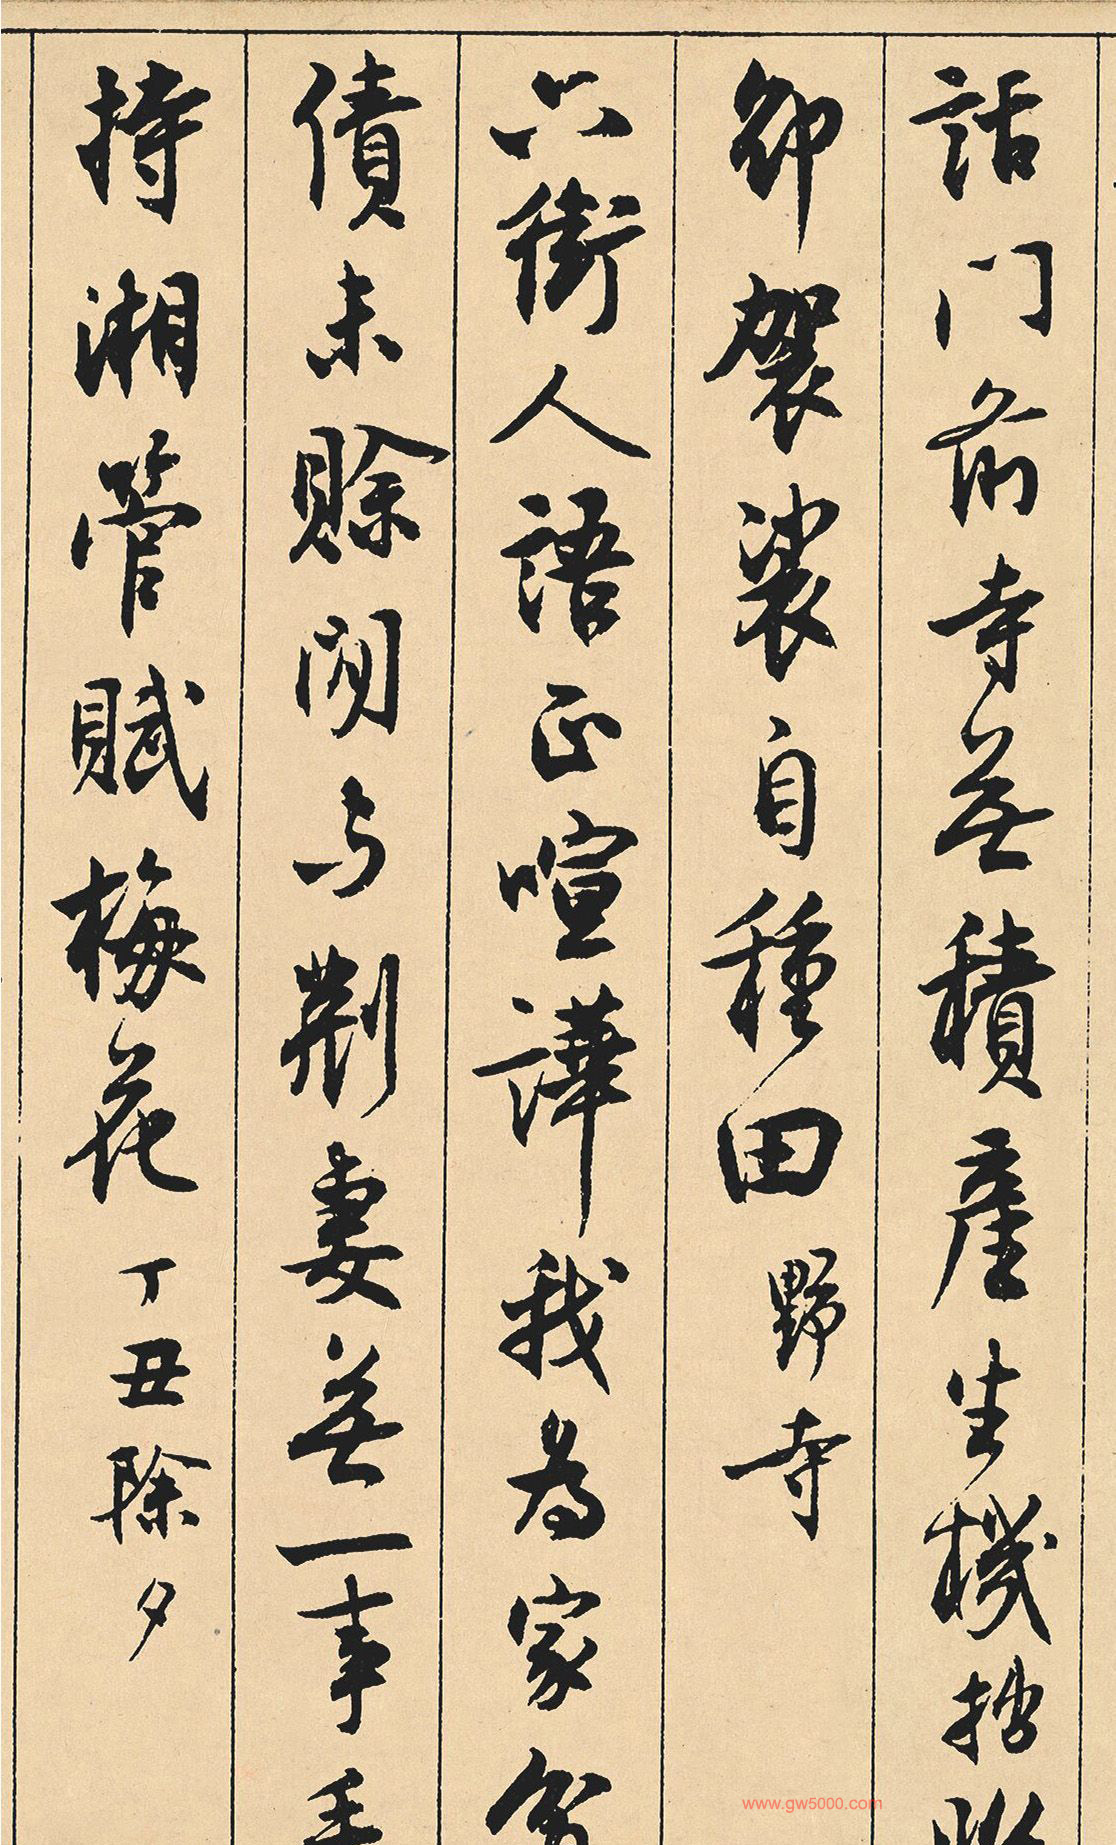 話门前寺無積產生機拙
卻袈裟自種田野寺
六街人語正喧譁我為家貧
債未賒閒与荆妻無一事手
持湘管賦梅花丁丑除夕
www.gw5000.com